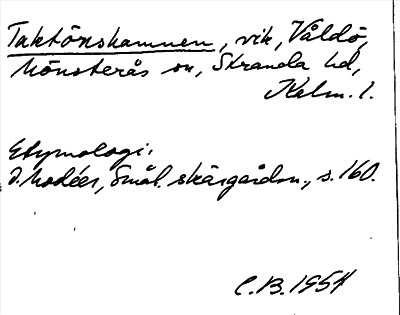 Taktönshamnen, vik, Våldö,
Mönsterås sn, Stranda hd,
Kalm. l.
Etymologi:
I. Modéer, Smål. skärgårdsn., s. 160.
C.B. 1954